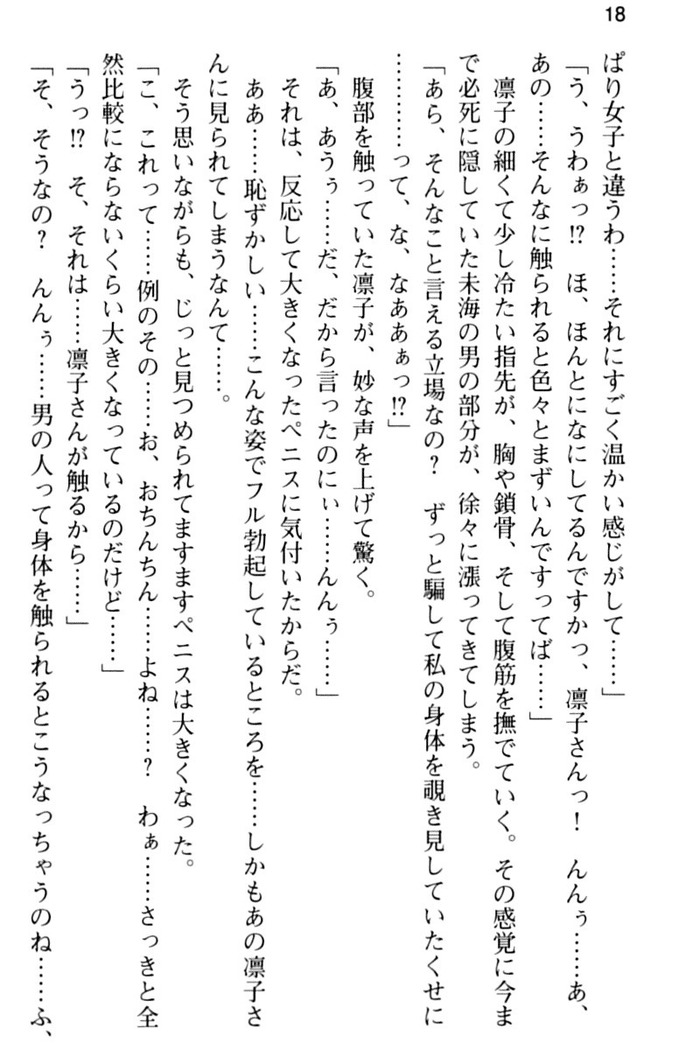 18
ぱり女子と違うわ……それにすごく温かい感じがして……」
「う、うわぁっ!? ほ、ほんとになにしてるんですかっ、凛子さんっ! んんぅ……あ、
あの……そんなに触られると色々とまずいんですってば……」
凛子の細くて少し冷たい指先が、胸や鎖骨、そして腹筋を撫でていく。その感覚に今ま
で必死に隠していた未海の男の部分が、徐々に漲ってきてしまう。
「あら、そんなこと言える立場なの? ずっと騙して私の身体を覗き見していたくせに
…………って、な、なああぁっ!?」
腹部を触っていた凛子が、妙な声を上げて驚く。
「あ、あうぅ……だ、だから言ったのにぃ……んんぅ……」
それは、反応して大きくなったペニスに気付いたからだ。
ああ……恥ずかしい……こんな姿でフル勃起しているところを……しかもあの凛子さ
んに見られてしまうなんて……。
そう思いながらも、じっと見つめられてますますペニスは大きくなった。
「こ、これって……例のその……お、おちんちん……よね……? わぁ……さっきと全
然比較にならないくらい大きくなっているのだけど……」
「うっ!? そ、それは……凛子さんが触るから……」
「そ、そうなの? んんぅ……男の人って身体を触られるとこうなっちゃうのね……ふ、